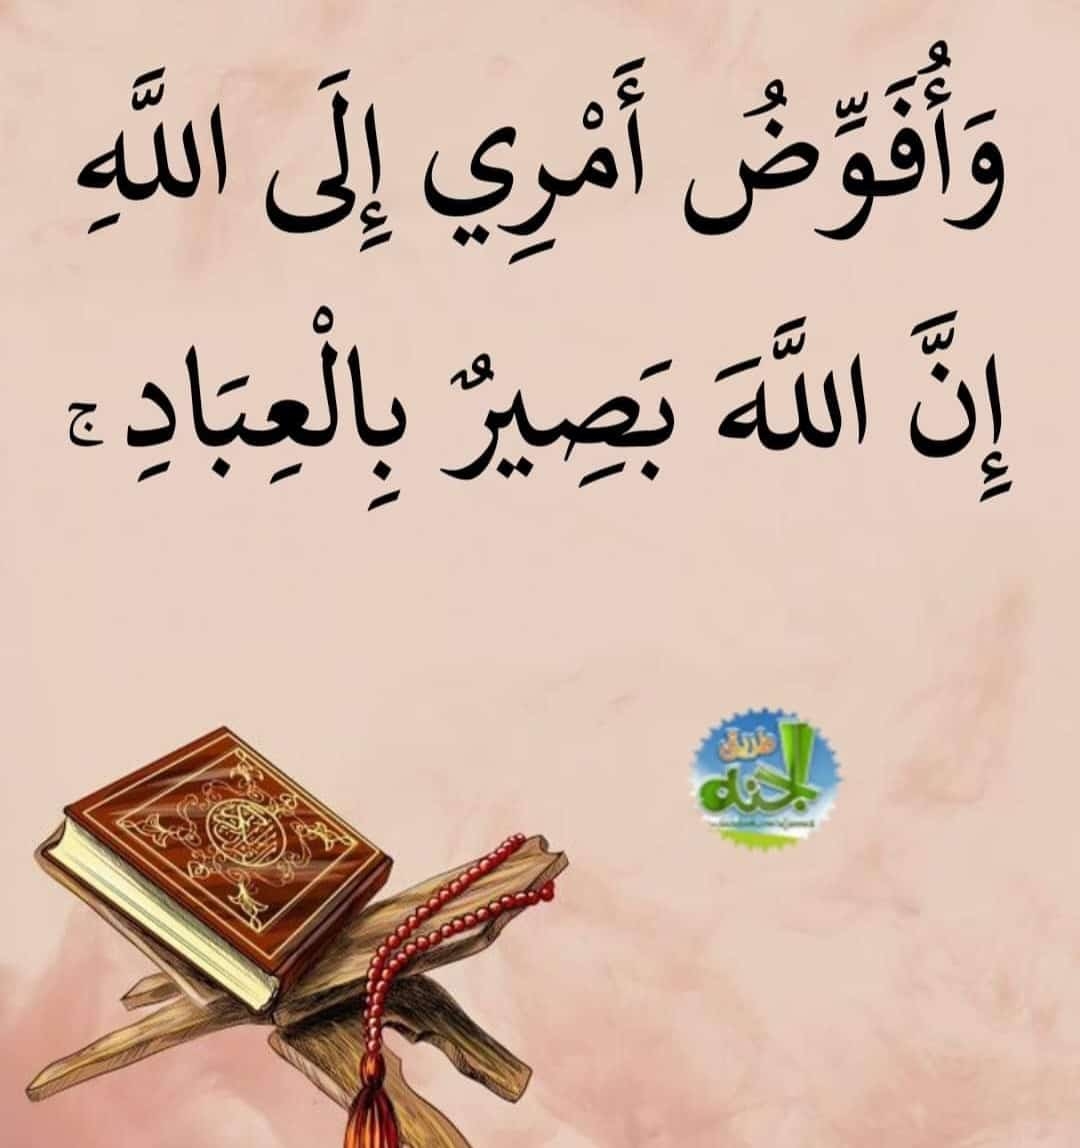 وَأُفَوِّضُ أَمْرِي إِلَى اللَّهِ
إِنَّ اللَّهَ بَصِيرٌ بِالْعِبَادِ ج
طريق
الجنه